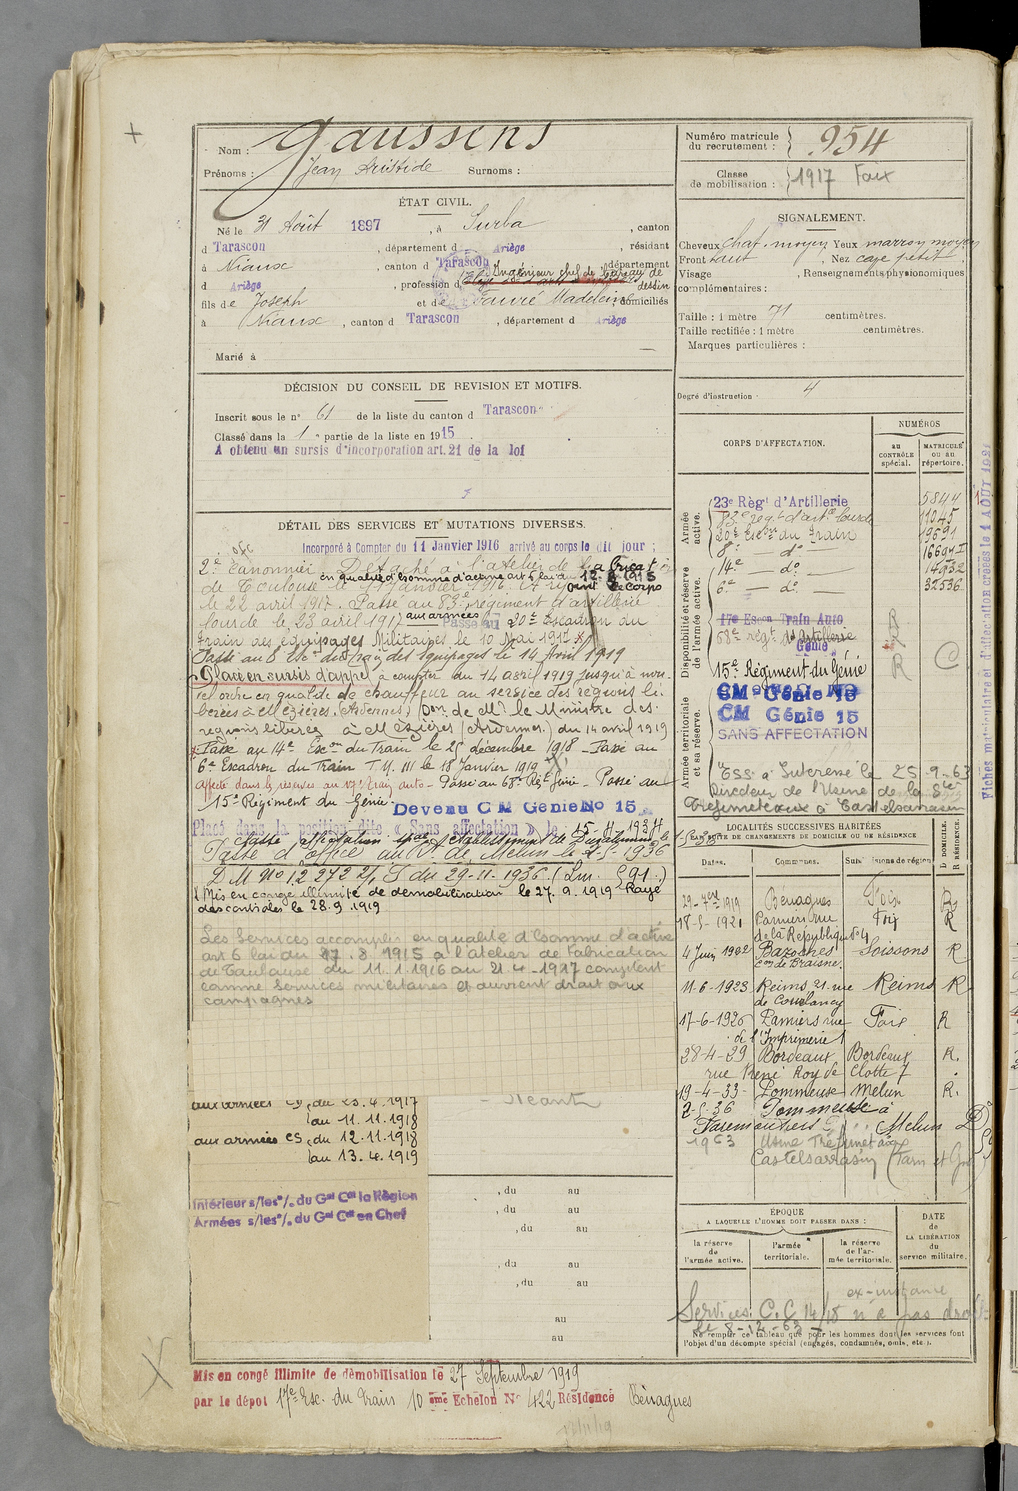 Nom : Gaussens
Prénoms : Jean Aristide Surnoms :
ÉTAT CIVIL.
Né le 31 Août 1897, à Surba, canton
d Tarascon, département d Ariège, résidant
à Niaux, canton d Tarascon, département
d Ariège, profession d Ingénieur chef de bureau de dessin
fils de Joseph et de Fauré Madeleine, domiciliés
à Niaux, canton d Tarascon, département d Ariège
Marié à
DÉCISION DU CONSEIL DE REVISION ET MOTIFS.
Inscrit sous le n° 61 de la liste du canton d Tarascon
Classé dans la 1e partie de la liste en 1915
A obtenu un sursis d'incorporation art. 21 de la loi
DÉTAIL DES SERVICES ET MUTATIONS DIVERSES.
Incorporé à Compter du 11 Janvier 1916 arrivé au corps le dit jour ;
2e Canonnier. Détaché à l'atelier de fabrication
en qualité d'homme d'active art. 6 loi du
de Toulouse le 11 janvier 1916.
le 22 avril 1917. Passé au 83e régiment d'artillerie
lourde le 23 avril 1917 aux armées Passé au 20e Escadron du
train des équipages Militaires le 10 Mai 1917
Passé au 8 Esc. du Train des équipages le 14 Avril 1919
Placé en sursis d'appel à compter du 14 avril 1919 jusqu'à nou-
vel ordre en qualité de chauffeur au service des régions li-
bérées à Mézières (Ardennes) Don de Mr le Ministre des
régions libérées à Mézières (Ardennes) du 14 avril 1919
Passé au 14e Esc. du Train le 25 décembre 1918 - Passé au
6e Escadron du Train T.M. III le 18 Janvier 1919
Affecté dans les réserves au 17e Train auto - Passé au 68e Rég. Génie - Passé au
15e Régiment du Génie. Devenu CM Génie No 15
Placé dans la position dite « Sans affectation » le 15-4-1934
Passé d'office au R. de Melun le 2-5-1936
D M No 12272 2/1 S du 29-11-1936
Mis en congé illimité de démobilisation le 27.9.1919 Rayé
des contrôles le 28.9.1919
Les Services accomplis en qualité d'homme d'active
art 6 loi du 17.8.1915 à l'atelier de Fabrication
de Toulouse du 11.1.1916 au 21.4.1917 comptent
comme services militaires et ouvrent droit aux
campagnes
aux armées CD du 23.4.1917
au 11.11.1918
aux armées CS du 12.11.1918
au 13.4.1919
Néant
Intérieur s/les %. du Gal Ct la Région
Armées s/les %. du Gal Ct en Chef
, du au
, du au
, du au
, du au
, du au
au
au
Mis en congé illimité de démobilisation le 27 Septembre 1919
par le dépôt 17e Esc. du Train 10 ème Echelon N° 422 Résidence Bénagues
Numéro matricule du recrutement : 954
Classe de mobilisation : 1917 Foix
SIGNALEMENT.
Cheveux chat. moyen Yeux marron moyen
Front haut, Nez cave petit
Visage, Renseignements physionomiques
complémentaires :
Taille : 1 mètre 71 centimètres.
Taille rectifiée : 1 mètre centimètres.
Marques particulières :
Degré d'instruction : 4
CORPS D'AFFECTATION.
NUMÉROS
AU CONTRÔLE spécial.
MATRICULE ou au répertoire.
Armée active.
23e Régt d'Artillerie 5844
83e régt d'arte lourde 11045
20e Escon du Train 19691
8e — do — 16694
14e — do — 14932
6e — do — 32536
Disponibilité et réserve de l'armée active.
17e Escon Train Auto R
68e régt d'Artillerie Génie
15e Régiment du Génie R
CM Génie 15
CM Génie 15
SANS AFFECTATION
Armée territoriale et sa réserve.
Ess. à Intéressé le 25-9-63
Directeur de l'Usine de la Sté
Tréfimétaux à Castelsarrasin
Fiches matriculaire et d'affectation créées le 1 AOUT 1921
LOCALITÉS SUCCESSIVES HABITÉES
PAR SUITE DE CHANGEMENTS DE DOMICILE OU DE RÉSIDENCE
Dates. Communes. Subdivisions de région D DOMICILE. R RÉSIDENCE.
29-7bre 1919 Bénagues Foix R
18-5-1921 Pamiers rue de la République No 4 Foix R
4 Juin 1922 Bazoches con de Braisne Soissons R
11-6-1923 Reims 21 rue de Courlancy Reims R
17-6-1926 Pamiers rue de l'Imprimerie 1 Foix R
28-4-29 Bordeaux Bordeaux R.
rue René Roy de Clotte 7
19-4-33 Pommeuse Melun R.
2-5-36 Pommeuse à
Faremoutiers Melun D
1963 Usine Tréfimétaux
Castelsarrasin (Tarn et Gne)
ÉPOQUE
A LAQUELLE L'HOMME DOIT PASSER DANS :
la réserve de l'armée active.
l'armée territoriale.
la réserve de l'armée territoriale.
DATE de LA LIBÉRATION du service militaire.
Services. C.C 14/18 n'a pas droit
le 8-12-63
Ne remplir ce tableau que pour les hommes dont les services font
l'objet d'un décompte spécial (engagés, condamnés, omis, etc.).